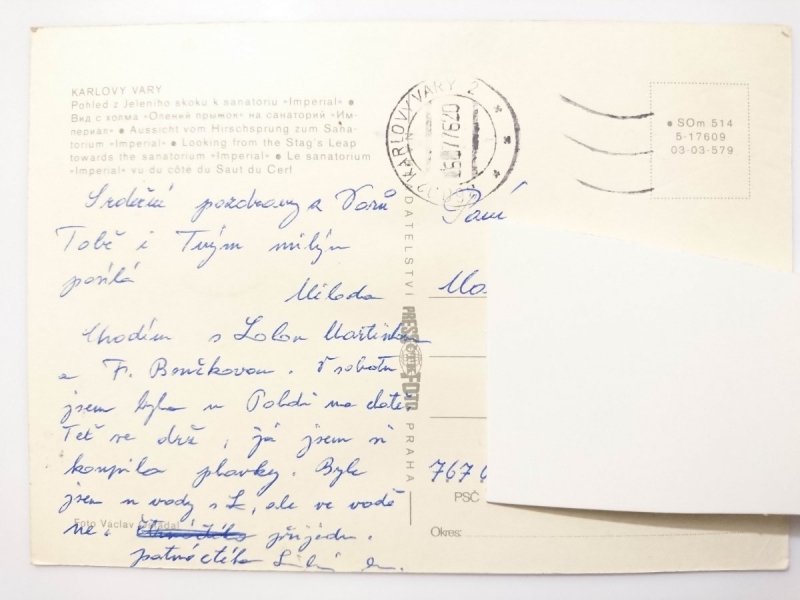 KARLOVY VARY
Pohled z Jeleního skoku k sanatoriu »Imperial« ●
Вид с холма «Олений прыжок» на санаторий «Им-
периал» ● Aussicht vom Hirschsprung zum Sana-
torium »Imperial« ● Looking from the Stag's Leap
towards the sanatorium »Imperial« ● Le sanatorium
»Imperial« vu du côté du Saut du Cerf
KARLOVY VARY 2
● SOm 514
5-17609
03-03-579
Srdečné pozdravy z Varů
Tobě i Tvým milým
posílá
Milada
Chodím s Lolou Martinkovou
a F. Benčkovou. V sobotu
jsem byla u Poldi na
Teť se drž, já jsem si
koupila plavky. Byla
jsem u vody s L, ale ve vodě
ne. přijedu
patnáctého
Paní
767
DATELSTVÍ PRESSFOTO PRAHA
PSČ
Okres:
Foto Václav